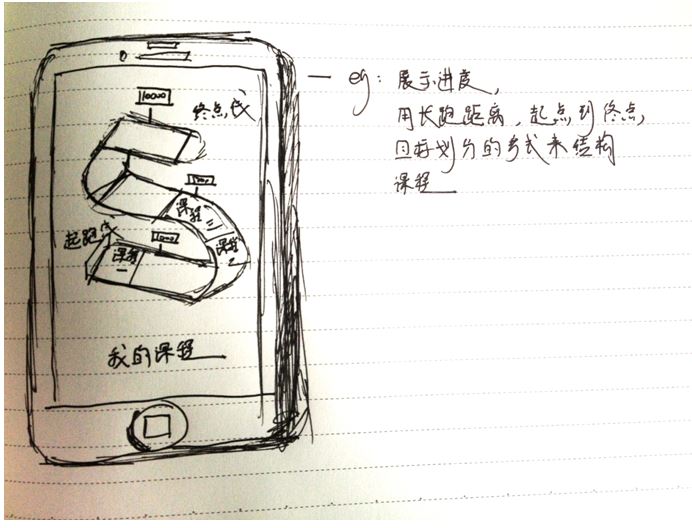 10000
终点线
课程三
起跑线
1000
课程一
课程2
我的课程
— eg: 展示进度,
用长跑距离, 起点到终点,
目标划分的方式来结构
课程